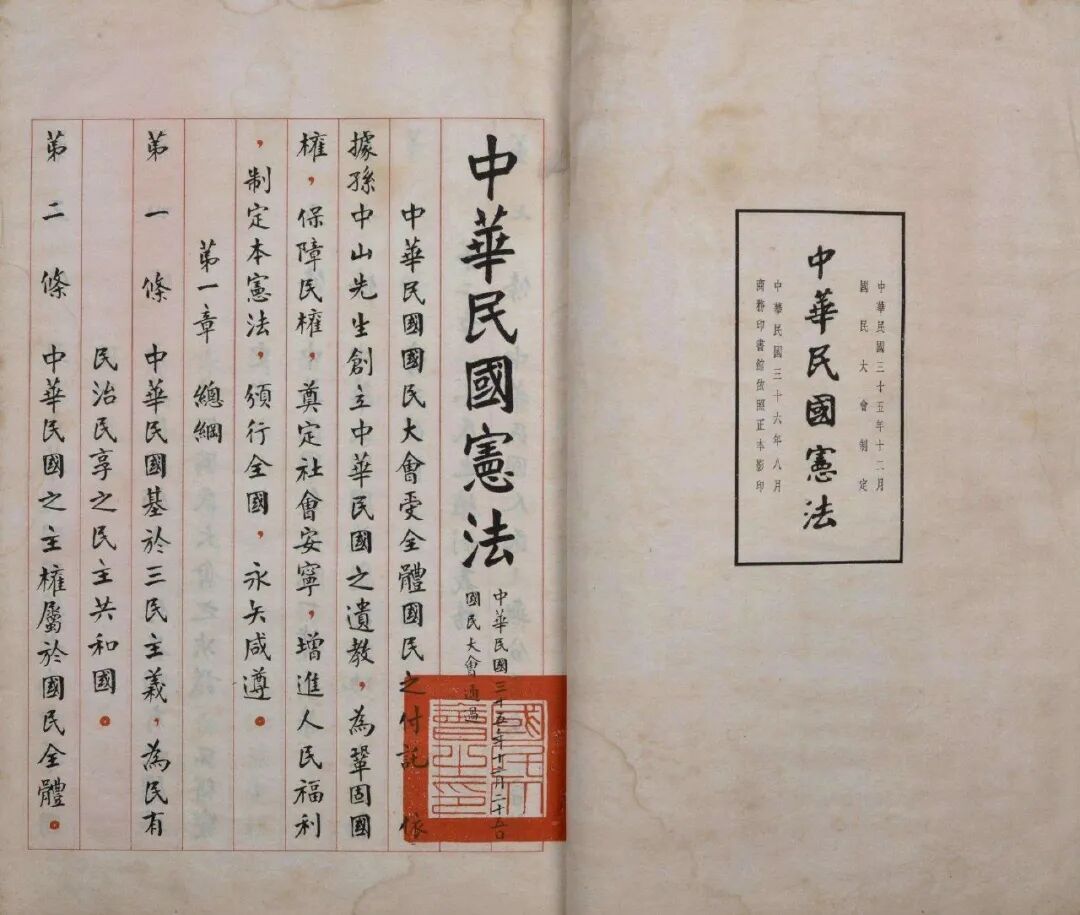 中華民國三十五年十二月
國民大會制定
中華民國憲法
中華民國三十六年八月
商務印書館依照正本影印
中華民國憲法
中華民國三十五年十二月二十五日
國民大會通過
國民大會之印
中華民國國民大會受全體國民之付託,依
據孫中山先生創立中華民國之遺教,為鞏固國
權,保障民權,奠定社會安寧,增進人民福利
,制定本憲法,頒行全國,永矢咸遵。
第一章 總綱
第一條 中華民國基於三民主義,為民有
民治民享之民主共和國。
第二條 中華民國之主權屬於國民全體。